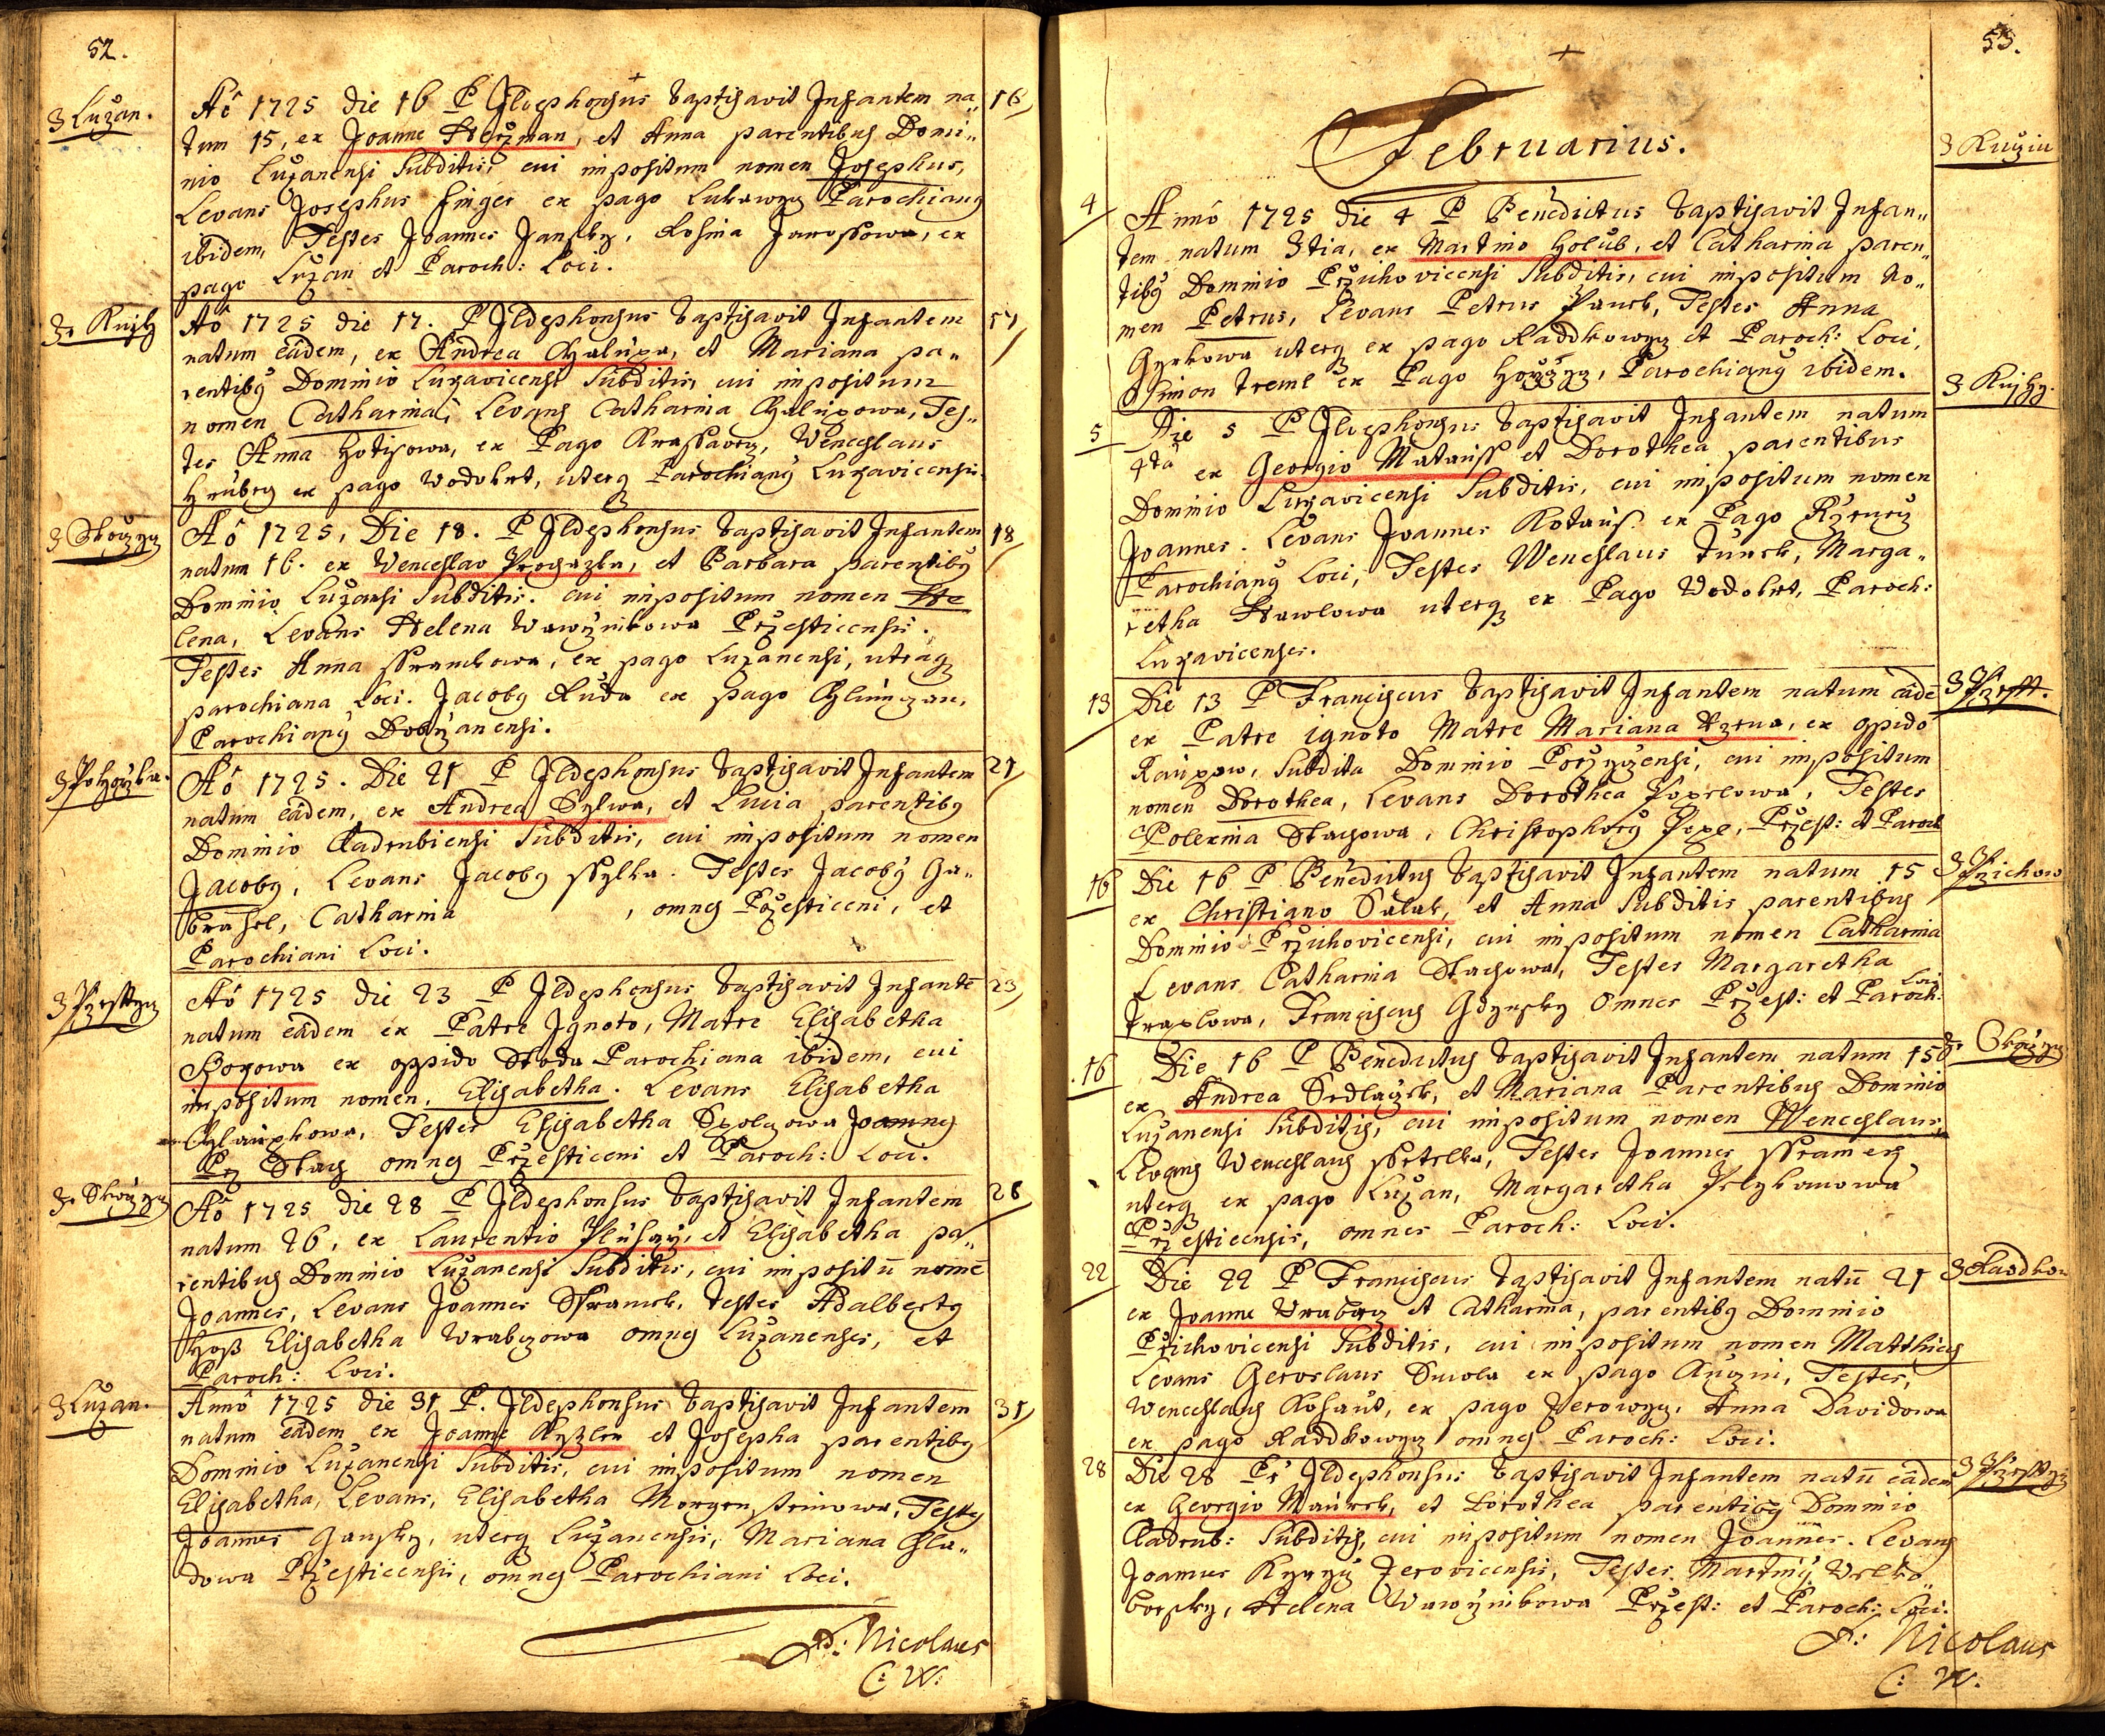 52.
Z Luzan.
Aô 1725 die 16 P Ildephonsus baptisavit Infantem na„ 16
tum 15, ex Joanne Herzman, et Anna parentibus Domi„
nio Luzanensi Subditis, cui impositum nomen Josephus,
Levans Josephus Finger ex pago Lukawyz Parochianus
ibidem, Testes Joannes Jansky, Rosina Jarossowa, ex
pago Luzan et Paroch: Loci.
Aô 1725 die 17. P Ildephonsus baptisavit Infantem 17
natum eâdem, ex Andrea Chalupa, et Mariana pa„
rentibus Dominio Luzavicensi Subditis, cui impositum
nomen Catharina, Levans Catharina Chalupowa, Tes„
tes Anna ex Pago Wenceslaus
Hrubey ex pago Wodokrt, uterq Parochiany Luzavicensis.
Aô 1725, Die 18. P Ildephonsus baptisavit Infantem 18
natum 16. ex Wenceslao Prochazka, et Barbara parentibus
Dominio Luzansi Subditis. cui impositum nomen He
lena, Levans Helena Wawrzinkowa Przesticensis.
Testes Anna ssramkowa, ex pago Luzanensi, utraq
parochiana Loci. Jacobus Ruda ex pago
Parochiany Dobrzanensi.
Aô 1725. Die 21 P Ildephonsus baptisavit Infantem 21
natum eâdem, ex Andrea Sylwa, et Lucia parentibus
Dominio Kadrubiensi Subditis, cui impositum nomen
Jacobus, Levans Jacobus ssylka. Testes Jacobus Ga„
brahel, Catharina , omnes Przesticeni, et
Parochiani Loci.
Aô 1725 die 23 P Ildephonsus baptisavit Infantē 23
natum eâdem ex Patre Ignoto, Matre Elisabetha
ex oppido Stoda Parochiana ibidem, cui
impositum nomen. Elisabetha. Levans Elisabetha
Chlaupkowa, Testes Elisabetha Joannes
Stach omnes Przesticeni et Paroch: Loci.
Aô 1725 die 28 P Ildephonsus baptisavit Infantem 28
natum 26, ex Laurentio et Elisabetha pa„
rentibus Dominio Luzanensi Subditis, cui impositū nomē
Joannes, Levans Joannes Sframek, testes Adalbertus
Hoss Elisabetha Wrabczowa omnes Luzanenses, et
Paroch: Loci.
Z Luzan.
Annô 1725 die 31 P. Ildephonsus baptisavit Infantem 31
natum eâdem ex Joanne et Josepha parentibus
Dominio Luzanensi Subditis, cui impositum nomen
Elisabetha, Levans, Elisabetha Morgensteinowa, Testes
Joannes Jansky, uterq Luzanensis, Mariana Hla„
dowa Przesticensis, omnes Parochiani Loci.
P: Nicolaus
C: W:
53.
Februarius.
4 Annô 1725 die 4 P Benedictus baptisavit Infan„
tem natum 3tia, ex Martino Holub, et Catharina paren„
tibus Dominio Przichovicensi Subditis, cui impositum No„
men Petrus, Levans Petrus Panek, Testes Anna
uterq ex pago Raddkowyz et Paroch: Loci,
Simon Treml ex Pago Parochianus ibidem.
5 Die 5 P Ildephonsus baptisavit Infantem natum
4ta ex Georgio Matauss et Dorothea parentibus
Dominio Luzavicensi Subditis, cui impositum nomen
Joannes. Levans Joannes ex Pago
Parochianus Loci, Testes Wenceslaus Turek, Marga„
retha Hawlowa uterq ex Pago Wodokrt, Paroch:
Luzavicenses.
13 Die 13 P Franciscus baptisavit Infantem natum eâdē
ex Patre ignoto Matre Mariana ex oppido
Subdita Dominio cui impositum
nomen Dorothea, Levans Dorothea Testes
Polexina Stachowa, Christophorus Przest: et Paroch
Z Przichow
16 Die 16 P Benedictus baptisavit Infantem natum 15
ex Christiano Salak, et Anna Subditis parentibus
Dominio Przichovicensi, cui impositum nomen Catharina
Levans Catharina Stachowa, Testes Margaretha
Traxlowa, Franciscus Gdynsky Omnes Przest: et Paroch: Loci
16 Die 16 P Benedictus baptisavit Infantem natum 15
ex Andrea Sedlaczek, et Mariana Parentibus Dominio
Luzanensi Subditis, cui impositum nomen Wenceslaus,
Levans Wenceslaus ssetelka, Testes Joannes ssramek
uterq ex pago Luzan, Margaretha
Przesticensis, omnes Paroch: Loci.
Z Raddkow
22 Die 22 P Franciscus baptisavit Infantem natū 21
ex Joanne Wrabecz et Catharina, parentibus Dominio
Prichovicensi Subditis, cui impositum nomen Matthias
Levans Geroslaus Smola ex pago Kuczin, Testes,
Wenceslaus Kohaut, ex pago Zerowyz, Anna Davidowa
ex pago Raddkowyz omnes Paroch: Loci.
28 Die 28 Pr Ildephonsus baptisavit Infantem natū eâdem
ex Georgio Maurek, et Dorothea parentibus Dominio
Kadrub: Subditis, cui impositum nomen Joannes. Levans
Joannes Zerovicensis, Testes Martinus Welko
borsky, Helena Wawrzinkowa Przest: et Paroch: Loci.
P: Nicolaus
C: W.